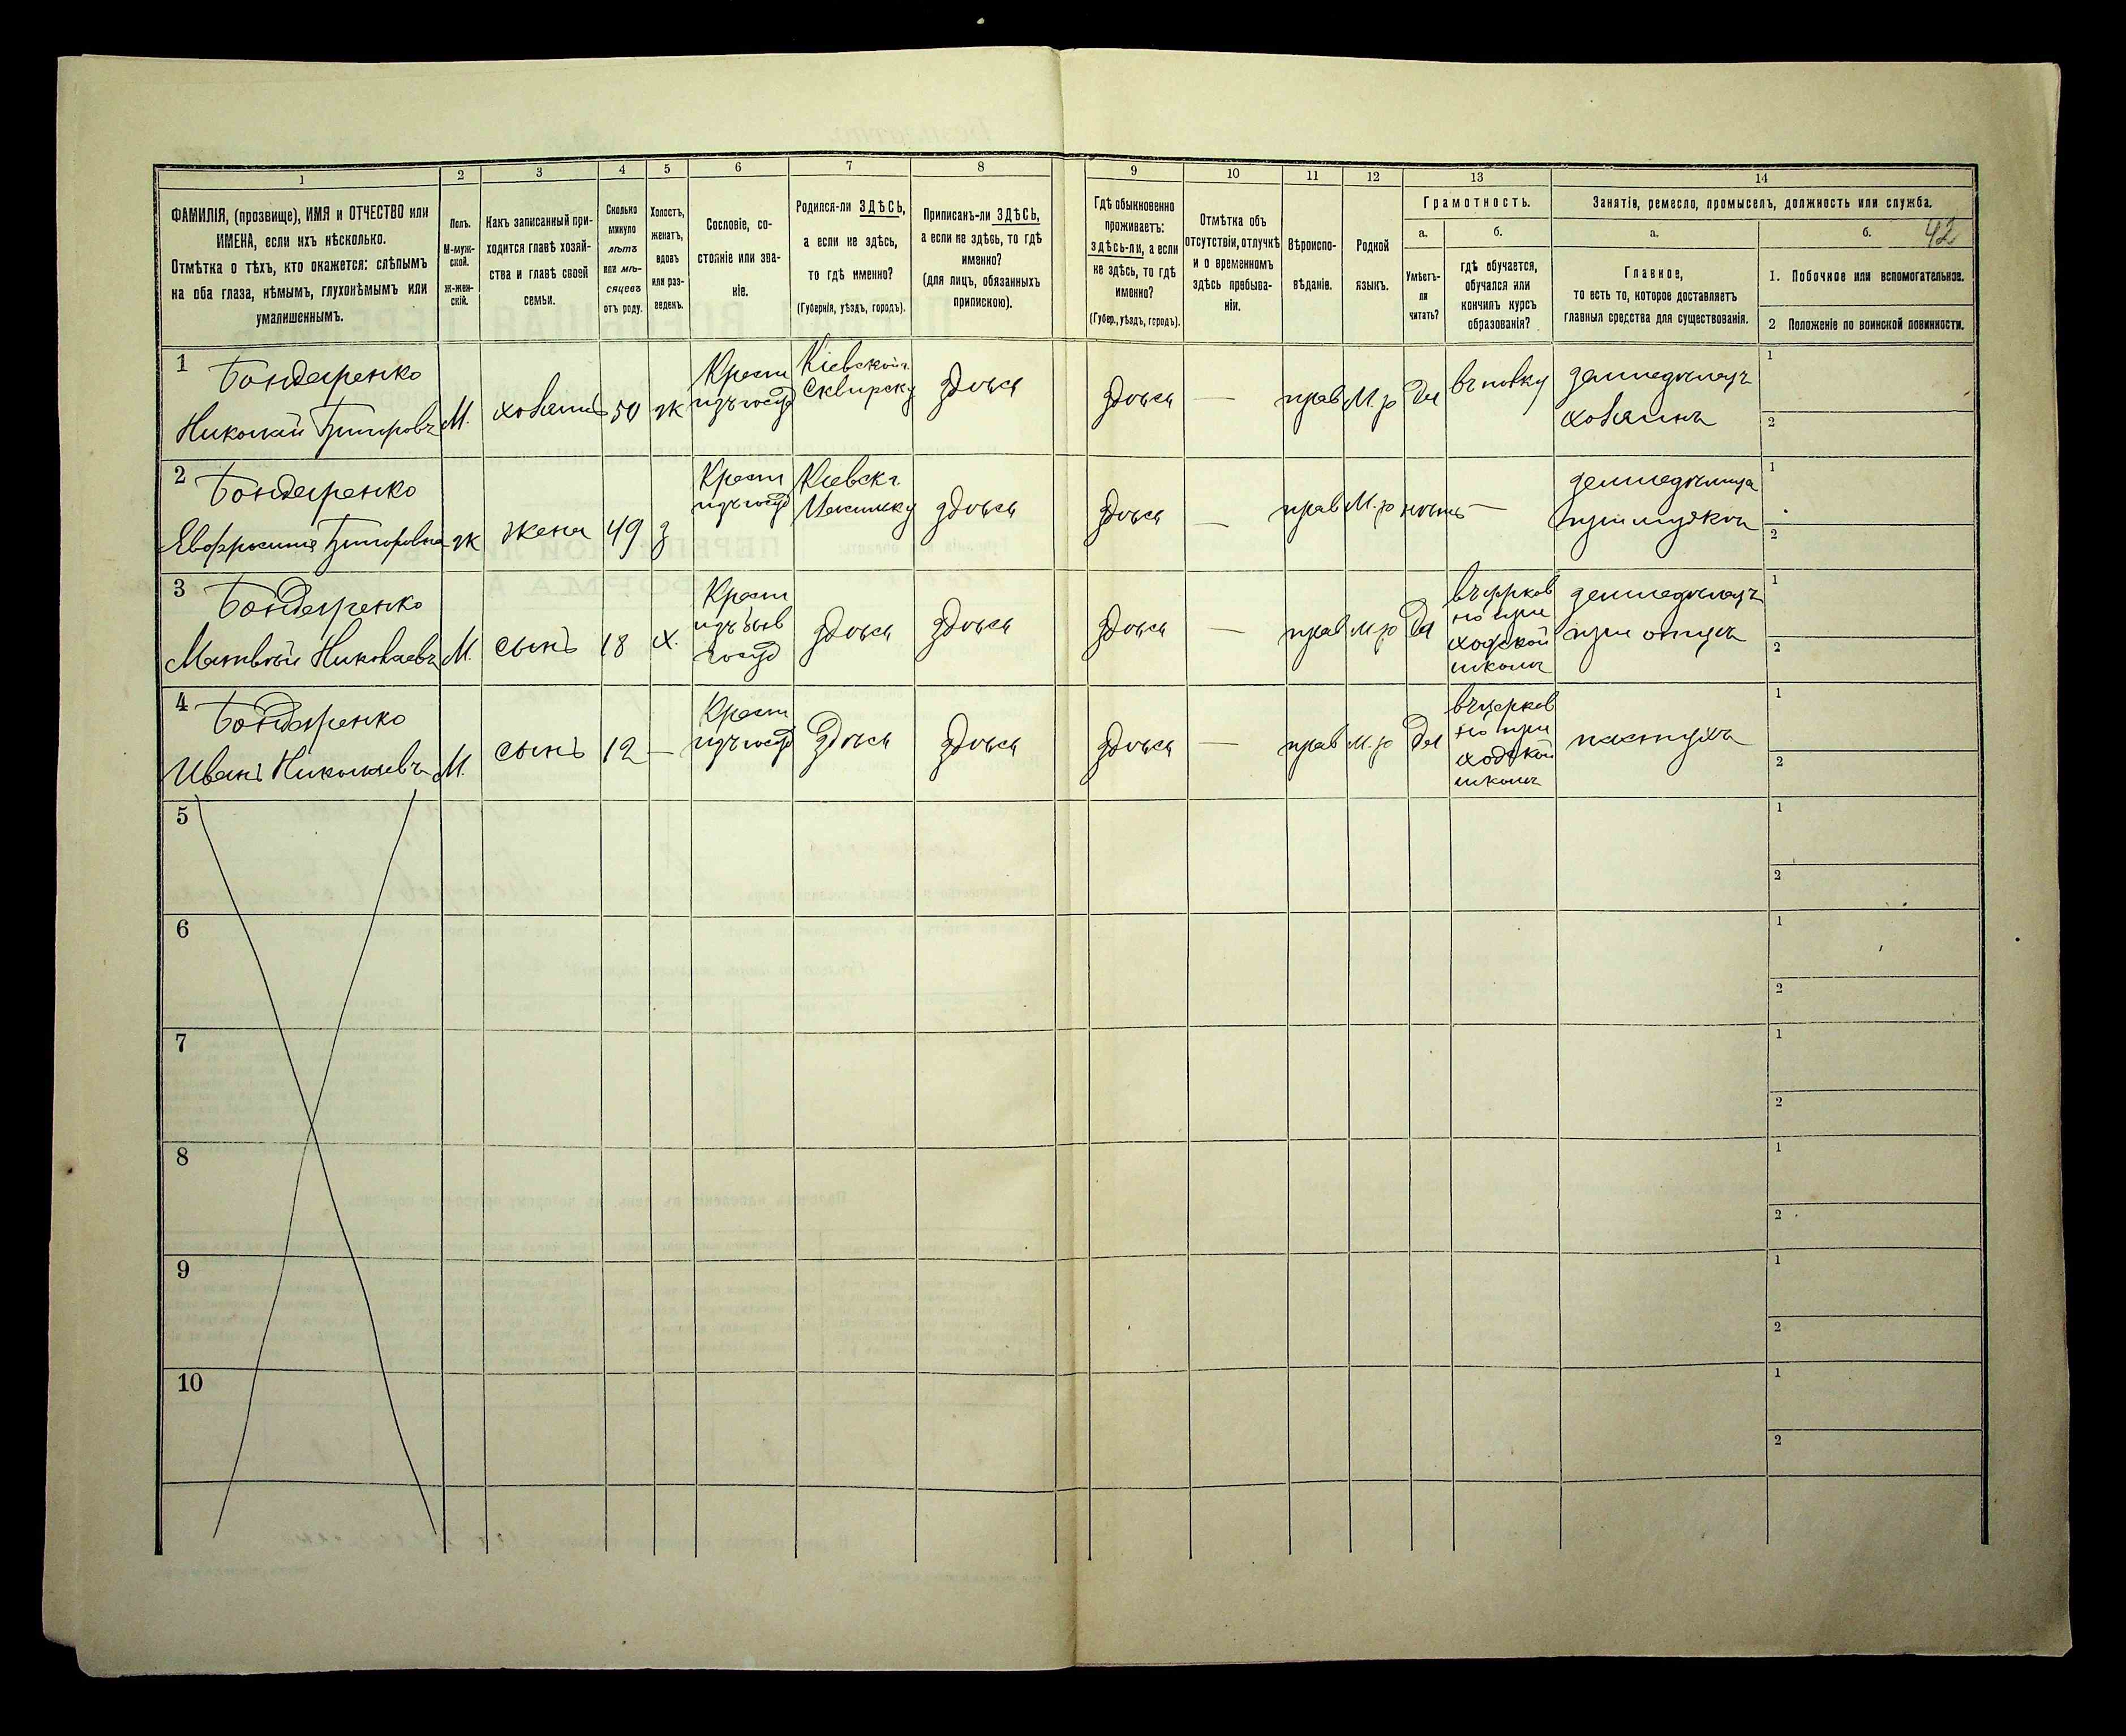 1 2 3 4 5 6 7 8 9 10 11 12 13 14
ФАМИЛІЯ, (прозвище), ИМЯ и ОТЧЕСТВО или
ИМЕНА, если ихъ нѣсколько.
Отмѣтка о тѣхъ, кто окажется: слѣпымъ
на оба глаза, нѣмымъ, глухонѣмымъ или
умалишеннымъ.
Полъ.
М-муж-
ской.
Ж-жен-
скій.
Какъ записанный при-
ходится главѣ хозяй-
ства и главѣ своей
семьи.
Сколько
минуло
лѣтъ
или мѣ-
сяцевъ
отъ роду.
Холостъ,
женатъ,
вдовъ
или раз-
веденъ.
Сословіе, со-
стояніе или зва-
ніе.
Родился-ли ЗДѢСЬ,
а если не здѣсь,
то гдѣ именно?
(Губернія, уѣздъ, городъ).
Приписанъ-ли ЗДѢСЬ,
а если не здѣсь, то гдѣ
именно?
(для лицъ, обязанныхъ
припискою).
Гдѣ обыкновенно
проживаетъ:
здѣсь-ли, а если
не здѣсь, то гдѣ
именно?
(Губер., уѣздъ, городъ).
Отмѣтка объ
отсутствіи, отлучкѣ
и о временномъ
здѣсь пребыва-
ніи.
Вѣроиспо-
вѣданіе.
Родной
языкъ.
Грамотность.
а.
Умѣетъ-
ли
читать?
б.
гдѣ обучается,
обучался или
кончилъ курсъ
образованія?
Занятіе, ремесло, промыселъ, должность или служба.
а.
Главное,
то есть то, которое доставляетъ
главныя средства для существованія.
б. 42
1. Побочное или вспомогательное.
2 Положеніе по воинской повинности.
1
Бондаренко
Николай Григоровъ
М.
хозяинъ
50
ж
Крест
изъ госуд
Кіевской г.
Сквирску
здѣсь
здѣсь
—
прав
М. р
Да
земледѣлецъ
хозяинъ
1
2
2
Бондаренко
Евфросинія Григоровна
ж
жена
49
з
Крест
изъ госуд
Кіевск г.
здѣсь
здѣсь
—
прав
М. р
нѣтъ
—
земледѣлица
при мужѣ
1
2
3
Бондаренко
Матвѣй Николаевъ
М.
сынъ
18
х.
Крест
изъ быв
госуд
здѣсь
здѣсь
здѣсь
—
прав
м. р
Да
въ церков
но при
ходской
школѣ
земледѣлецъ
при отцѣ
1
2
4
Бондаренко
Иванъ Николаевъ
М.
сынъ
12
—
Крест
изъ госуд
здѣсь
здѣсь
здѣсь
—
прав
м. р
Да
въ церков
но при
ходской
школѣ
пастухъ
1
2
5
1
2
6
1
2
7
1
2
8
1
2
9
1
2
10
1
2